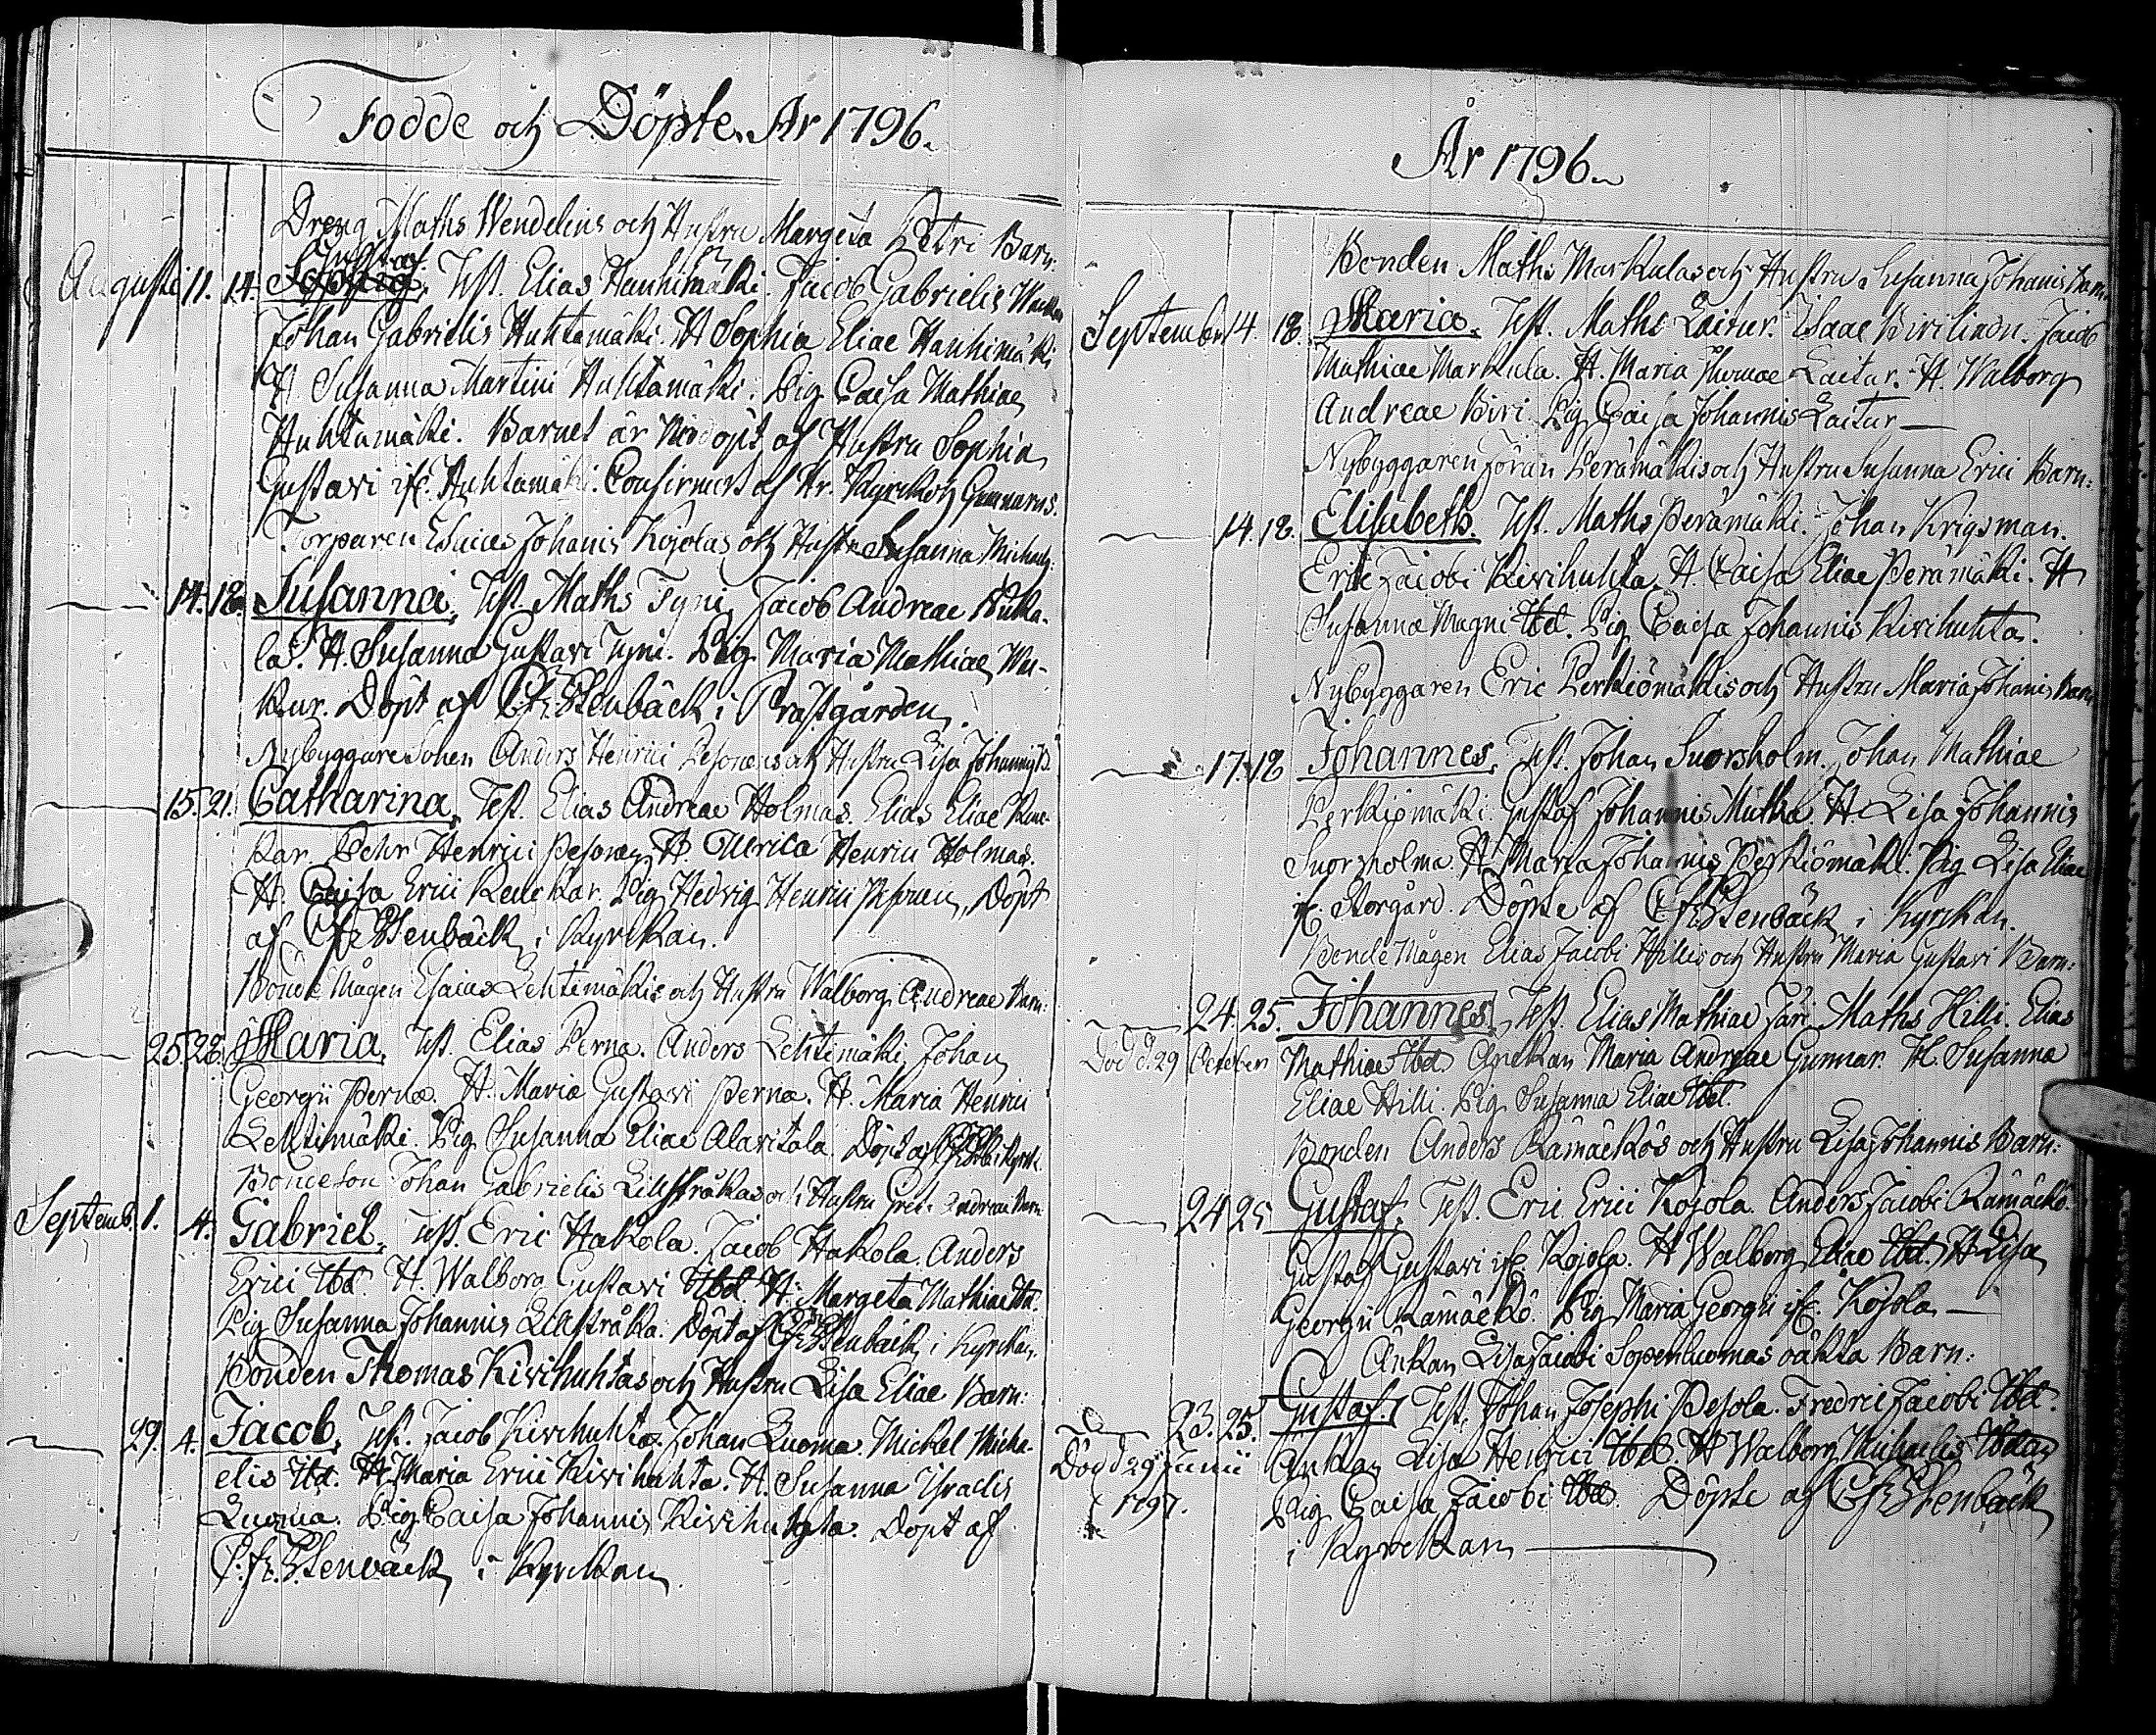 Födde och Döpte År 1796.
Dreng Maths Wendelins och Hustru Margeta Petri Barn:
Augusti 11. 14. Gustaf. Test. Elias Hanhimäki. Jacob Gabrielis
Johan Gabrielis Huhtamäki. H Sophia Eliae Hanhimäki
H. Susanna Martini Huhtamäki. Pig Caisa Mathiae
Huhtamäki. Barnet är Nöddöpt af Hustru Sophia
Gustavi Huhtamäki. Confirmert af Hr. Kyrckoh Gummerus.
Torparen Esaias Johanis Kojolas och Hustr Susanna Michaelis
14. 18. Susanna, Test. Maths Tyni, Jacob Andreae
la. H. Susanna Gustavi Tyni. Pig Maria Mathiae
kur. Döpt af C. Fr. Stenbäck i Prästgården.
Nybyggare Sonen Anders Henrici Pesonens och Hustru Lisa Johannis B.
15. 21. Catharina, Test. Elias Andreae Holmas. Elias Eliae
kar. Pehr Henrici Pesonen, H. Ulrica Henrici Holmas.
H. Caisa Erici Pig Hedvig Henrici Pesonen, Döpt
af C. Fr. Stenbäck i Kyrckan.
Bonde Mågen Esaias Lehtimäkis och Hustru Walborg Andreae Barn:
25. 28. Maria, Test. Elias Perna. Anders Lehtimäki, Johan
Georgii Perna. H. Maria Gustavi Perna. H. Maria Henrici
Lehtimäki. Pig Susanna Eliae Alavitala Döpt af
Bondeson Johan Gabrielis Lillstråkas och Hustru Gret. Andreae Barn
Septemb. 1. 4. Gabriel, Test. Eric Hakola. Jacob Hakola. Anders
Erici Ibd. H. Walborg Gustavi Ibd. H. Margeta Mathiae Ibd.
Pig Susanna Johannis Lillstråka. Döpt af C. Fr. Stenbäck i Kyrckan.
Bonden Thomas Kivihuhtas och Hustru Lisa Eliae Barn:
29. 4. Jacob, Test. Jacob Kivihuhta. Johan Luoma. Mickel Micha-
elis Ibd. H. Maria Erici Kivihuhta. H. Susanna Israelis
Luoma. Pig Caisa Johannis Kivihuhta. Döpt af
C. Fr. Stenbäck i Kyrckan.
År 1796.
Bonden Maths Markulas och Hustru Susanna Johanis Barn.
September 14. 18. Maria, Test. Maths Laitur. Isaac Jacob
Mathiae Markula. H. Maria Thomae Laitur. H. Walborg
Andreae Biri. Pig Caisa Johannis Laitur—
Nybyggaren Jöran Perämäkis och Hustru Susanna Erici Barn:
14. 18. Elisabeth. Test. Maths Perämäki. Johan Krigsman.
Eric Jacobi Kivihuhta, H. Caisa Eliae Perämäki. H
Susanna Magni Ibd. Pig Caisa Johannis Kivihuhta.
Nybyggaren Eric Perkiömäkis och Hustru Maria Johanis Barn
17. 18 Johannes, Test. Johan Snorsholm. Johan Mathiae
Perkiömäki. Gustaf Johannis Mutka. H Lisa Johannis
Snorsholma. H Maria Johannis Perkiömäki. Pig Lisa Eliae
Storgård. Döpte af C. Fr. Stenbäck i Kyrckan.
Bonde Mågen Elias Jacobi Hillis och Hustru Maria Gustavi Barn:
24. 25. Johannes, Test. Elias Mathiae Järi Maths Hilli. Elias
Död d. 29 October Mathiae Ibd Änckan Maria Andreae Gunnar. H. Susanna
Eliae Hilli. Pig Susanna Eliae Ibd.
Bonden Anders Rämäckös och Hustru Lisa Johannis Barn:
24 25 Gustaf, Test. Eric Erici Kojola. Anders Jacobi Rämäckö.
Gustaf Gustavi Kojola. H Walborg Eliae Ibd. H Lisa
Georgii Rämäckö. Pig Maria Georgii Kojola—
Änkan Lisa Jacobi Sopenluomas oäkta Barn:
23. 25. Gustaf. Test. Johan Josephi Pesola. Fredric Jacobi Ibd.
Död d 29 Junii 1797. Änkan Lisa Henrici Ibd. H Walborg Michaelis Ibdm
Pig Caisa Jacobi Ibd. Döpte af C Fr Stenbäck
i Kyrckan—